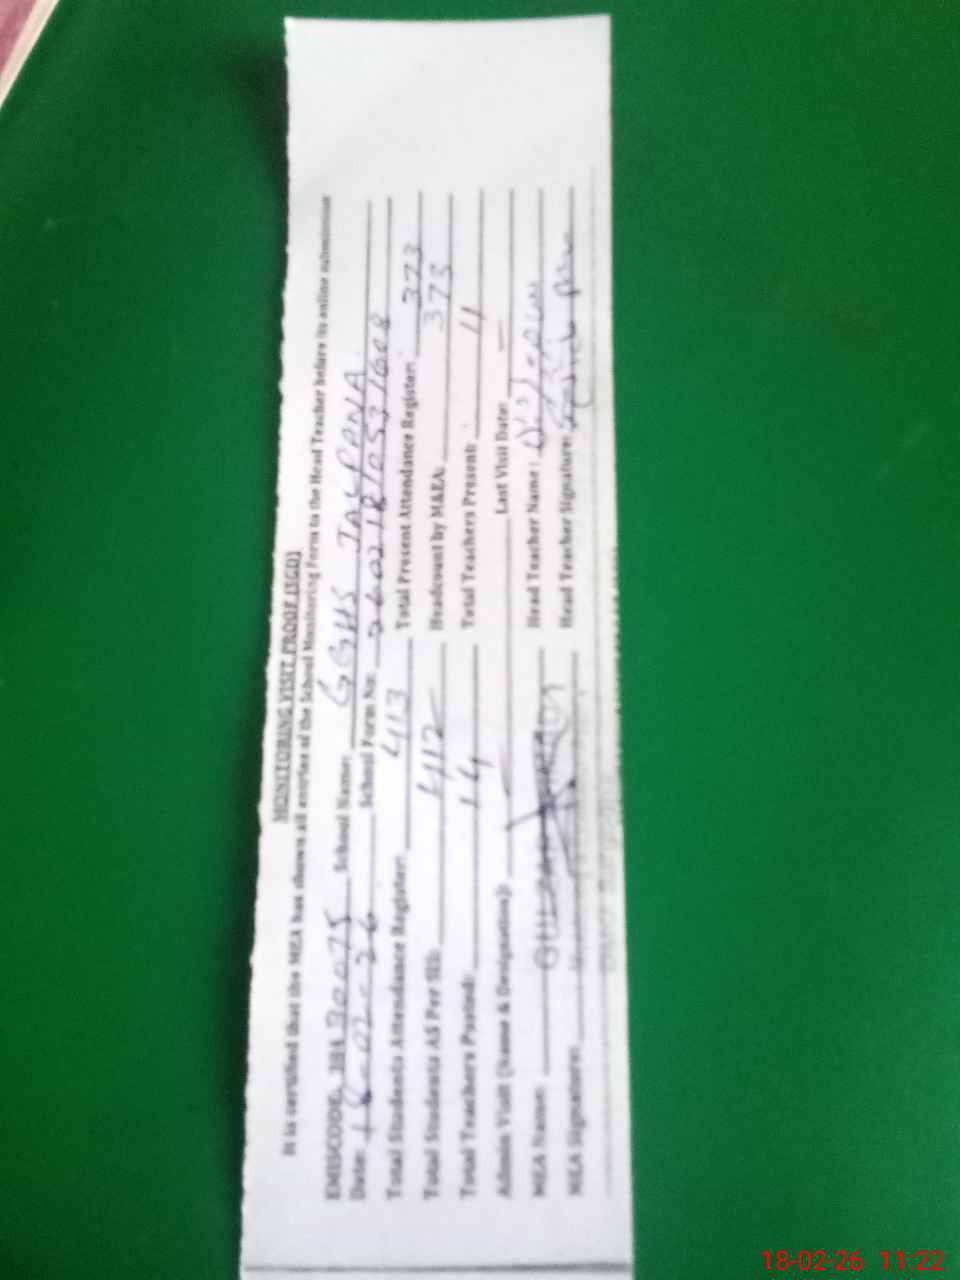 MONITORING VISIT PROOF (SGD)
It is certified that the MEA has shown all entries of the School Monitoring Form to the Head Teacher before its online submission
EMISCODE: 384 30075 School Name: GGHS JALPANA
Date: 18-02-26 School Form No: 26021810531608
Total Students Attendance Register: 413 Total Present Attendance Register: 373
Total Students AS Per SIS: 412 Headcount by M&EA: 373
Total Teachers Posted: 14 Total Teachers Present: 11
Admin Visit (Name & Designation): Last Visit Date:
MEA Name: Head Teacher Name:
MEA Signature: Head Teacher Signature:
18-02-26 11:22